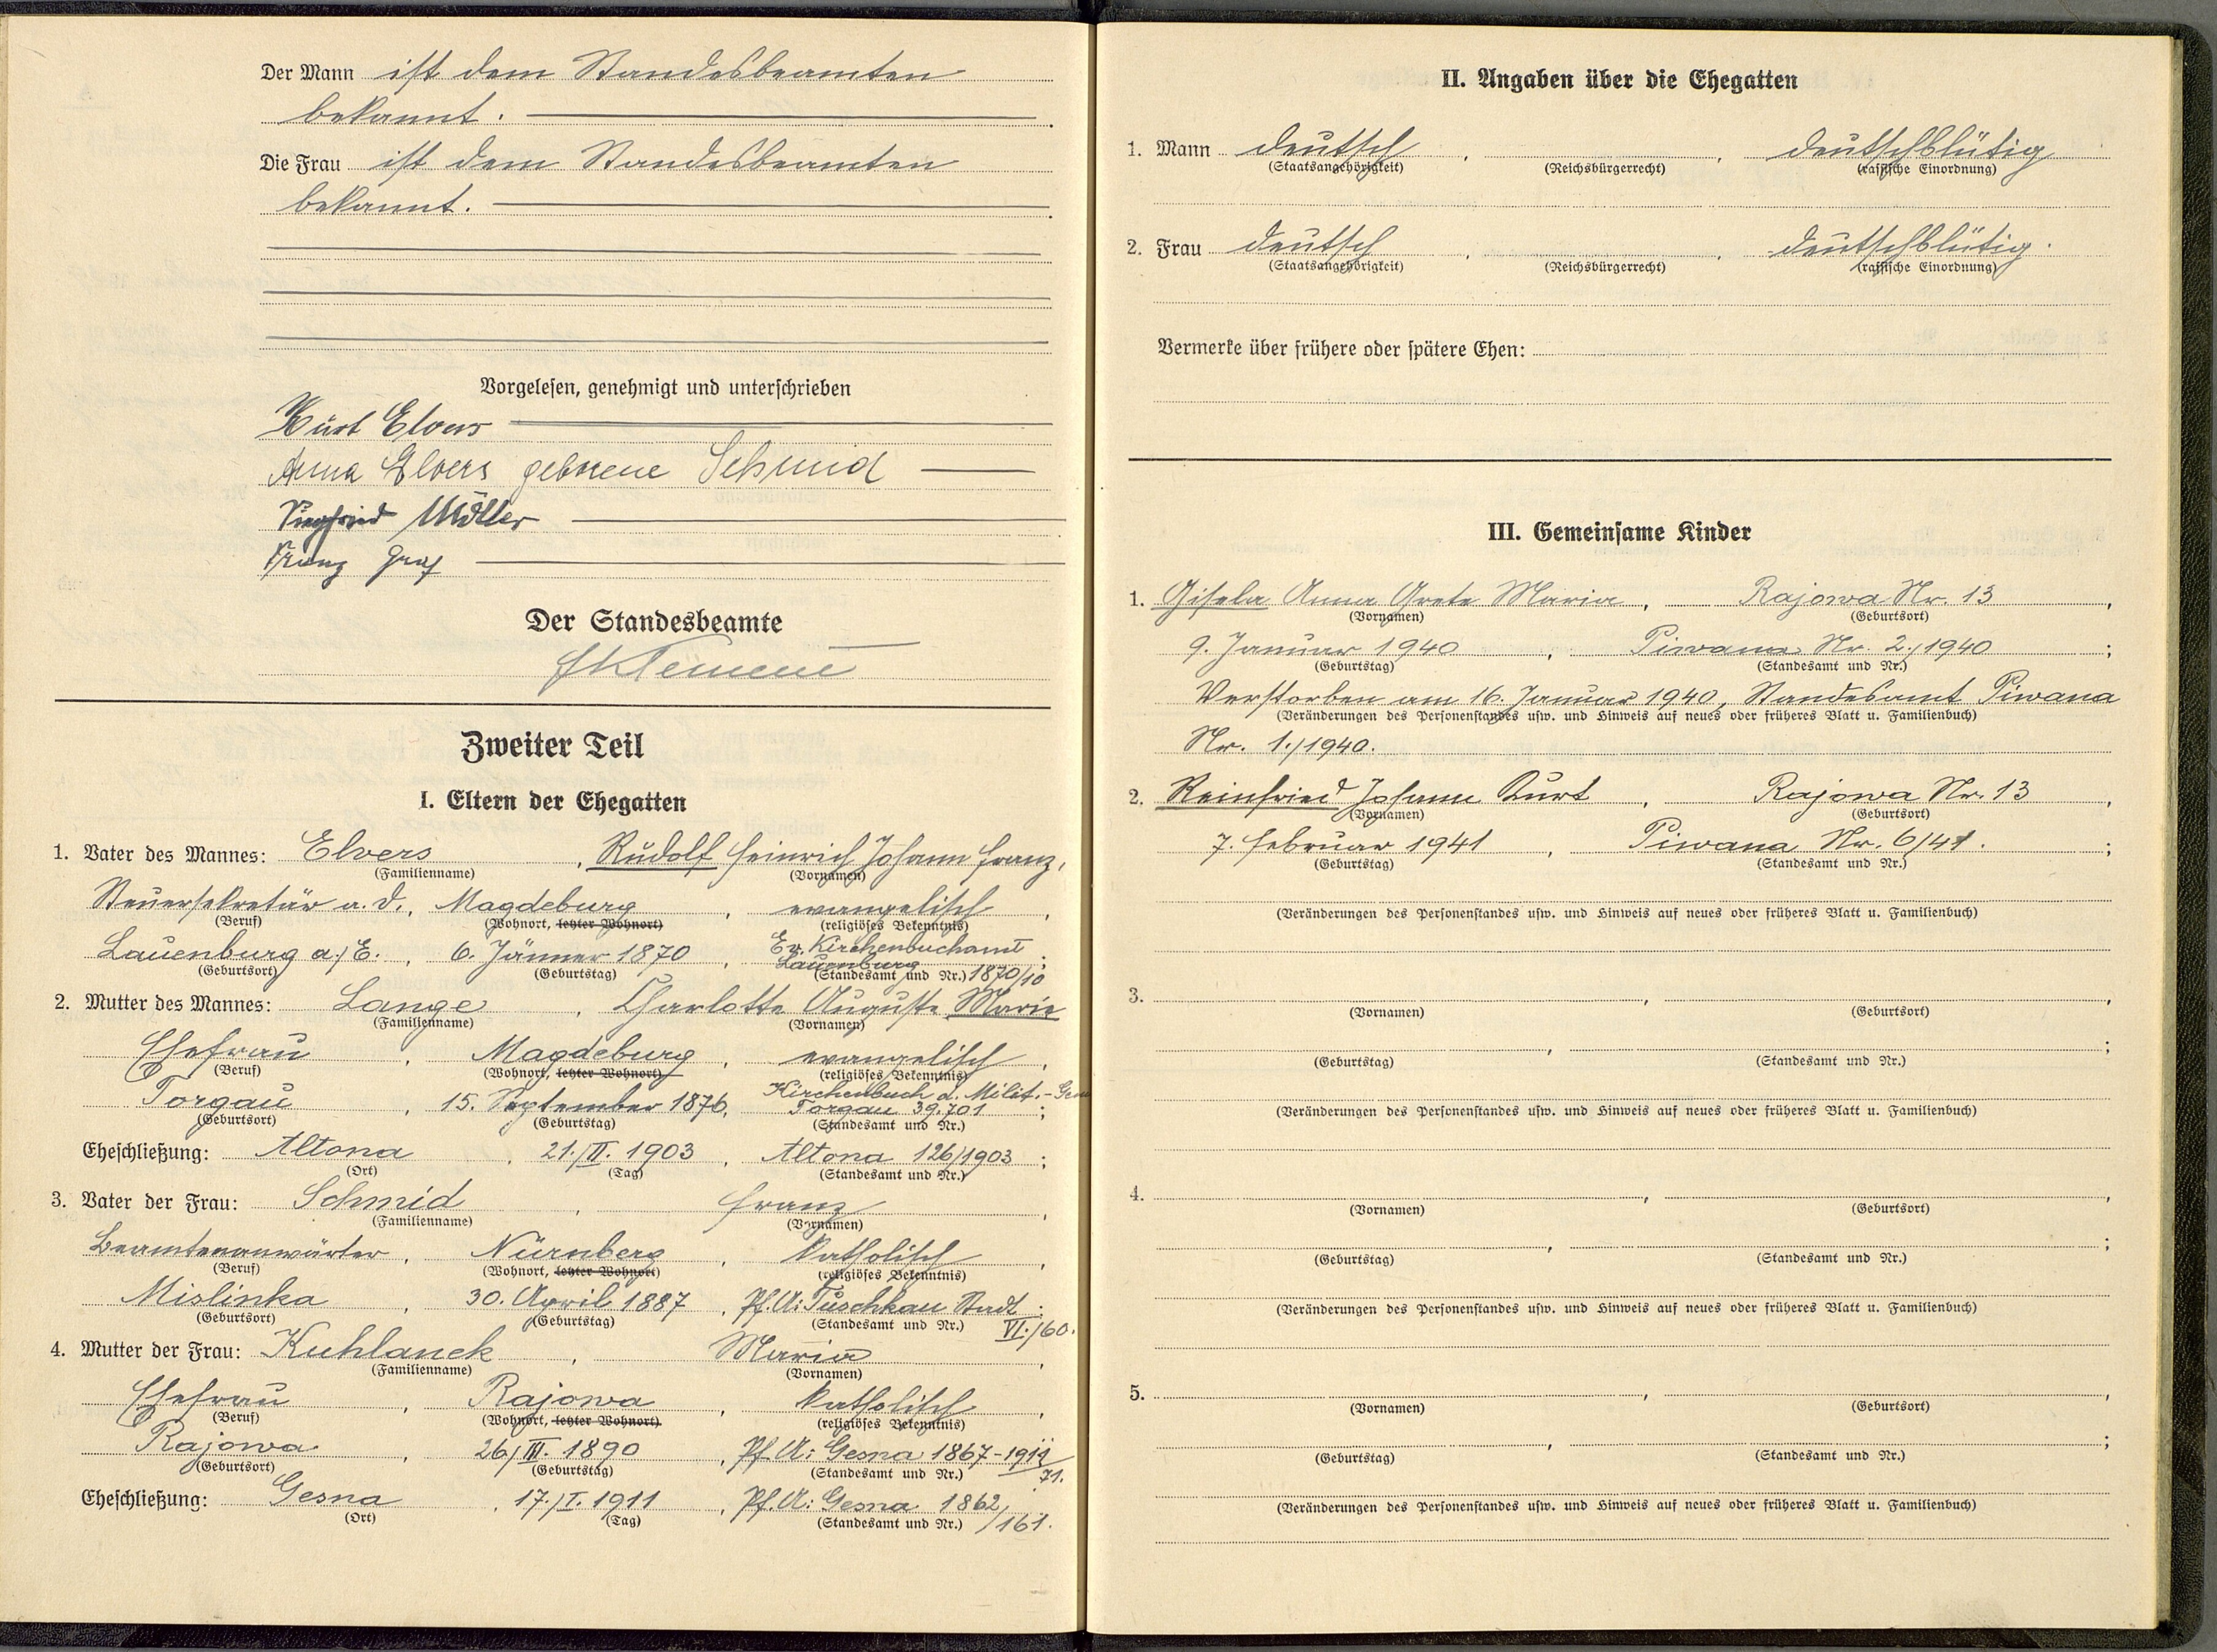 Der Mann ist dem Standesbeamten
bekannt.
Die Frau ist dem Standesbeamten
bekannt.
Vorgelesen, genehmigt und unterschrieben
Kurt Elvers
Anna Elvers geborene Schmid
Siegfried Möller
Franz Graf
Der Standesbeamte
Zweiter Teil
I. Eltern der Ehegatten
1. Vater des Mannes: Elvers, Rudolf Heinrich Johann Franz,
(Familienname) (Vornamen)
Steuersekretär a. d., Magdeburg, evangelisch,
(Beruf) (Wohnort, letzter Wohnort) (religiöses Bekenntnis)
Lauenburg a./E., 6. Jänner 1870, Ev. Kirchenbuchamt
Lauenburg 1870/10;
(Geburtsort) (Geburtstag) (Standesamt und Nr.)
2. Mutter des Mannes: Lange, Charlotte Auguste Marie
(Familienname) (Vornamen)
Ehefrau, Magdeburg, evangelisch,
(Beruf) (Wohnort, letzter Wohnort) (religiöses Bekenntnis)
Torgau, 15. September 1876, Kirchenbuch d. Milit.-Gem
Torgau 39.701;
(Geburtsort) (Geburtstag) (Standesamt und Nr.)
Eheschließung: Altona, 21./II. 1903, Altona 126/1903;
(Ort) (Tag) (Standesamt und Nr.)
3. Vater der Frau: Schmid, Franz,
(Familienname) (Vornamen)
Beamtenanwärter, Nürnberg, katholisch,
(Beruf) (Wohnort, letzter Wohnort) (religiöses Bekenntnis)
Mislinka, 30. April 1887, Pf. A: Tuschkau Stadt;
(Geburtsort) (Geburtstag) (Standesamt und Nr.) VI./60.
4. Mutter der Frau: Kuhlanek, Maria,
(Familienname) (Vornamen)
Ehefrau, Rajowa, katholisch,
(Beruf) (Wohnort, letzter Wohnort) (religiöses Bekenntnis)
Rajowa, 26./III. 1890, Pf. A: Gesna 1867-1912
(Geburtsort) (Geburtstag) (Standesamt und Nr.) 71.
Eheschließung: Gesna, 17./I. 1911, Pf. A: Gesna 1862,
(Ort) (Tag) (Standesamt und Nr.) /161.
II. Angaben über die Ehegatten
1. Mann deutsch, , deutschblütig
(Staatsangehörigkeit) (Reichsbürgerrecht) (rassische Einordnung)
2. Frau deutsch, , deutschblütig.
(Staatsangehörigkeit) (Reichsbürgerrecht) (rassische Einordnung)
Vermerke über frühere oder spätere Ehen:
III. Gemeinsame Kinder
1. Gisela Anna Grete Maria, Rajowa Nr. 13,
(Vornamen) (Geburtsort)
9. Januar 1940, Piwana Nr. 2./1940;
(Geburtstag) (Standesamt und Nr.)
Verstorben am 16. Januar 1940, Standesamt Piwana
(Veränderungen des Personenstandes usw. und Hinweis auf neues oder früheres Blatt u. Familienbuch)
Nr. 1./1940.
2. Reinfried Johann Kurt, Rajowa Nr. 13,
(Vornamen) (Geburtsort)
7. Februar 1941, Piwana Nr. 6/41.;
(Geburtstag) (Standesamt und Nr.)
(Veränderungen des Personenstandes usw. und Hinweis auf neues oder früheres Blatt u. Familienbuch)
3. , ,
(Vornamen) (Geburtsort)
, ;
(Geburtstag) (Standesamt und Nr.)
(Veränderungen des Personenstandes usw. und Hinweis auf neues oder früheres Blatt u. Familienbuch)
4. , ,
(Vornamen) (Geburtsort)
, ;
(Geburtstag) (Standesamt und Nr.)
(Veränderungen des Personenstandes usw. und Hinweis auf neues oder früheres Blatt u. Familienbuch)
5. , ,
(Vornamen) (Geburtsort)
, ;
(Geburtstag) (Standesamt und Nr.)
(Veränderungen des Personenstandes usw. und Hinweis auf neues oder früheres Blatt u. Familienbuch)